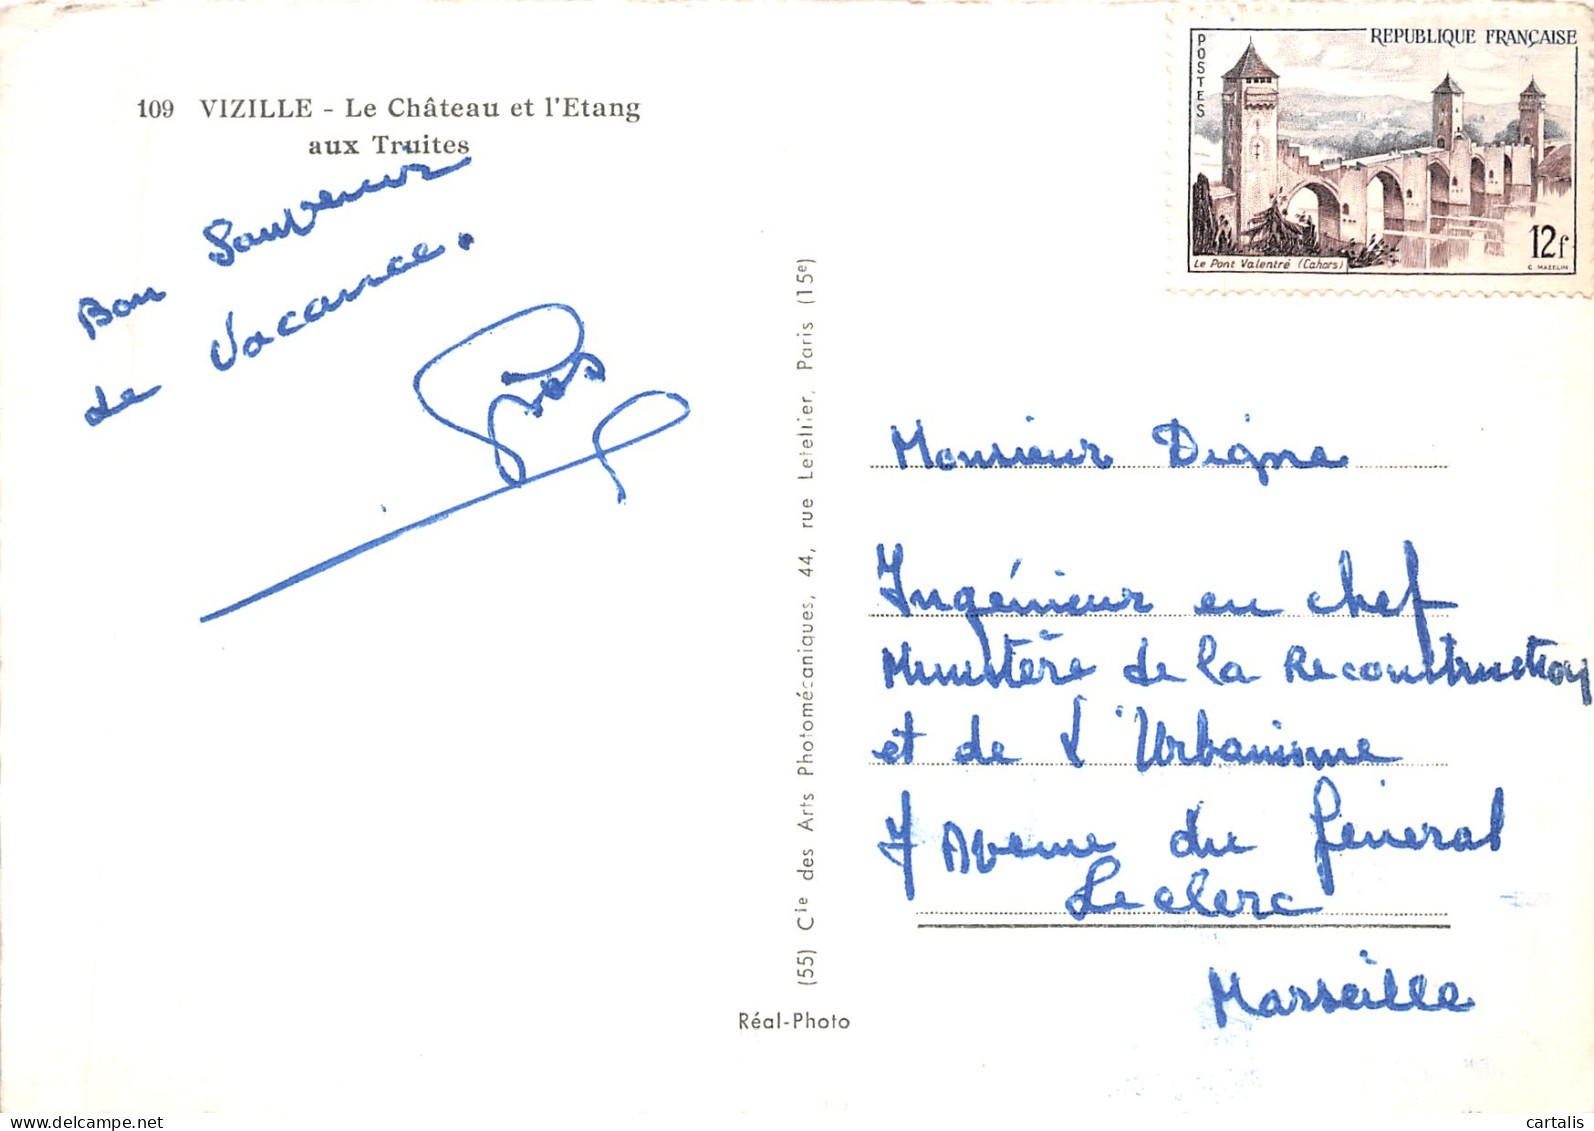 109 VIZILLE - Le Château et l'Etang
aux Truites
Bon Souvenir
de Vacance.
(55) Cie des Arts Photomécaniques, 44, rue Letellier, Paris (15e)
Réal-Photo
POSTES
REPUBLIQUE FRANÇAISE
Le Pont Valentré (Cahors)
12f
C. MAZELIN
Monsieur Digne
Ingénieur en chef
Ministère de la Reconstruction
et de l'Urbanisme
7 Avenue du Général
Leclerc
Marseille
delcampe.net
cartalis